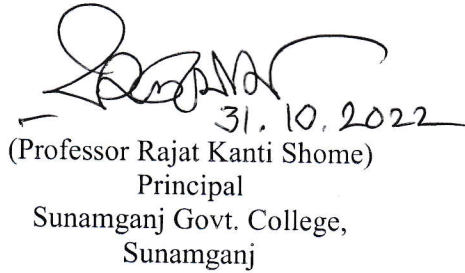 31.10.2022
(Professor Rajat Kanti Shome)
Principal
Sunamganj Govt. College,
Sunamganj